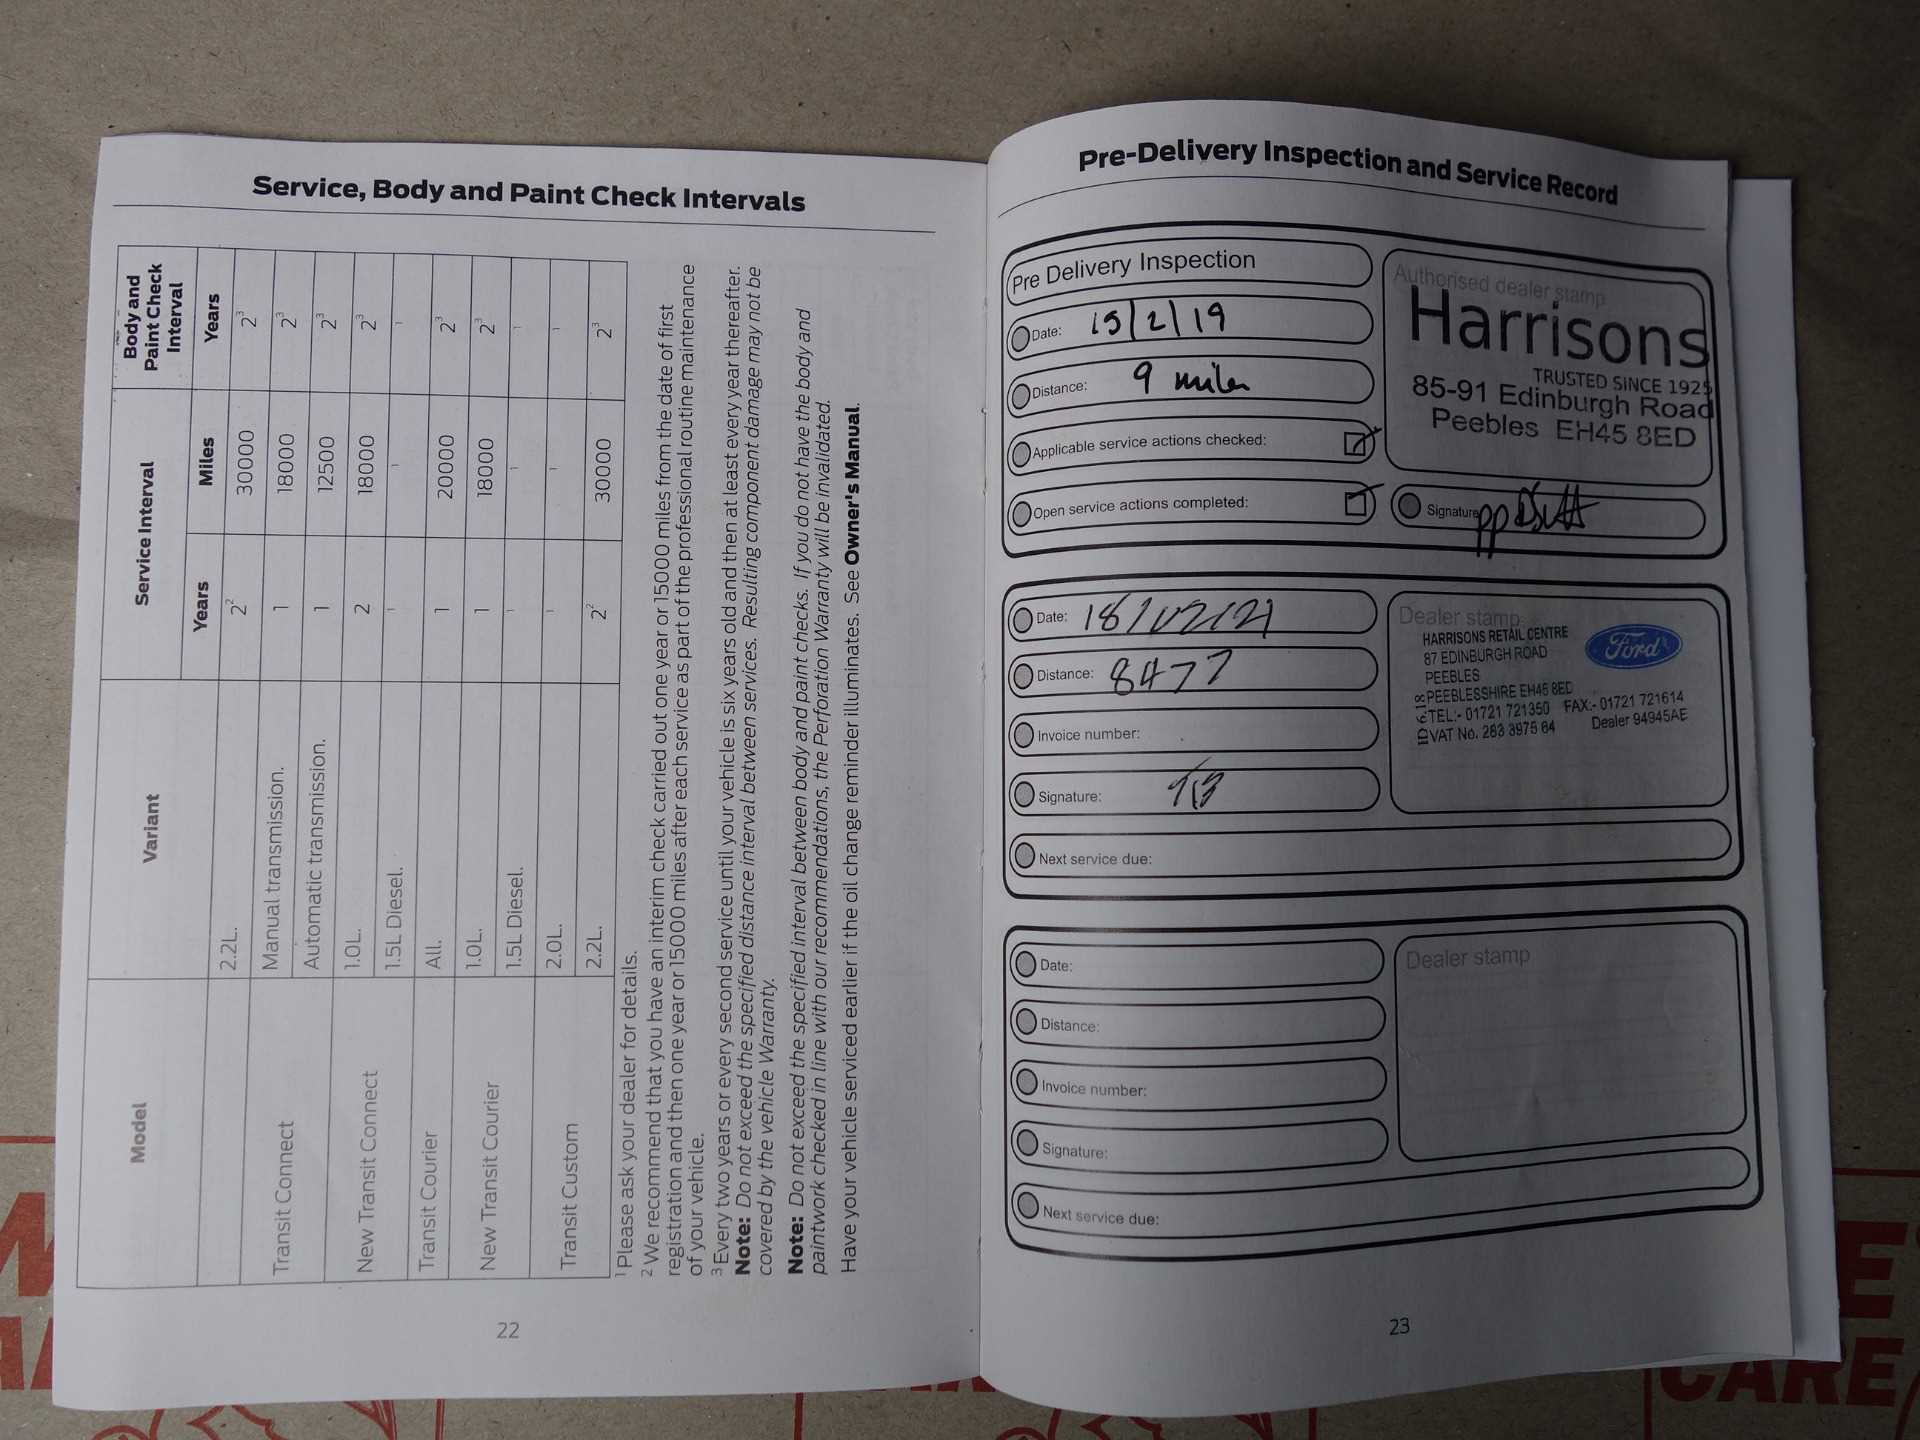 Service, Body and Paint Check Intervals
Model Variant Service Interval Body and Paint Check Interval
Years Miles Years
2.2L. 2² 30000 2³
Transit Connect Manual transmission. 1 18000 2³
Automatic transmission. 1 12500 2³
New Transit Connect 1.0L. 2 18000 2³
1.5L Diesel. 1 1 1
Transit Courier All. 1 20000 2³
New Transit Courier 1.0L. 1 18000 2³
1.5L Diesel. 1 1 1
Transit Custom 2.0L. 1 1 1
2.2L. 2² 30000 2³
¹ Please ask your dealer for details.
² We recommend that you have an interim check carried out one year or 15000 miles from the date of first
registration and then one year or 15000 miles after each service as part of the professional routine maintenance
of your vehicle.
³ Every two years or every second service until your vehicle is six years old and then at least every year thereafter.
Note: Do not exceed the specified distance interval between services. Resulting component damage may not be
covered by the vehicle Warranty.
Note: Do not exceed the specified interval between body and paint checks. If you do not have the body and
paintwork checked in line with our recommendations, the Perforation Warranty will be invalidated.
Have your vehicle serviced earlier if the oil change reminder illuminates. See Owner's Manual.
22
Pre-Delivery Inspection and Service Record
Pre Delivery Inspection
Date: 15/2/19
Distance: 9 miles
Applicable service actions checked:
Open service actions completed:
Authorised dealer stamp
Harrisons
TRUSTED SINCE 1925
85-91 Edinburgh Road
Peebles EH45 8ED
Signature
Date: 18/02/21
Distance: 8477
Invoice number:
Signature:
Next service due:
Dealer stamp
HARRISONS RETAIL CENTRE
87 EDINBURGH ROAD
PEEBLES
PEEBLESSHIRE EH45 8ED
TEL:- 01721 721350 FAX:- 01721 721614
VAT No. 283 3975 64 Dealer 94945AE
Ford
Date:
Distance:
Invoice number:
Signature:
Next service due:
Dealer stamp
23
CARE